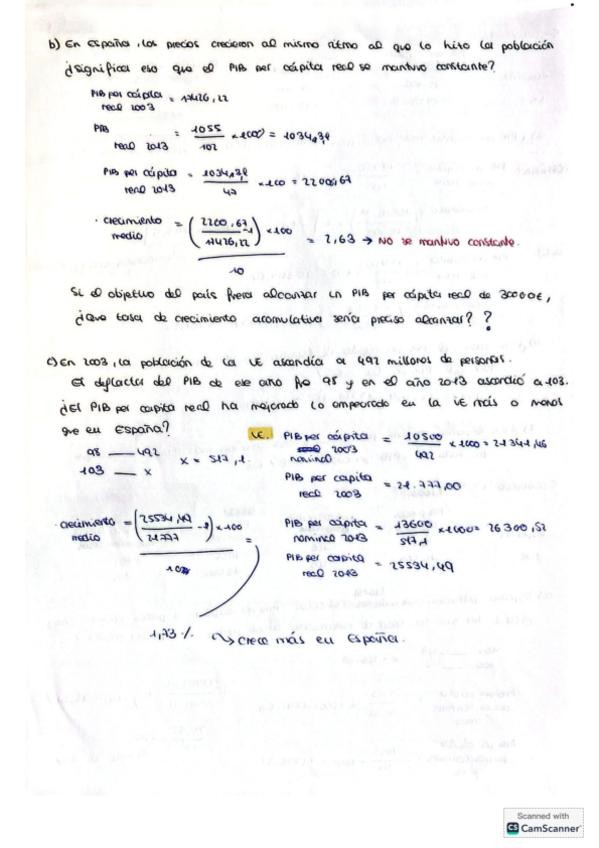 b) En España, los precios crecieron al mismo ritmo al que lo hizo la población
¿significa eso que el PIB per cápita real se mantuvo constante?
PIB per cápita real 2003 = 17426,22
PIB real 2013 = 1055 / 102 × 100 = 1034,31
PIB per cápita real 2013 = 1034,31 / 47 × 100 = 22006,67
· crecimiento medio = ((2200,67 / 17426,22) -1) × 100 / 10 = 2,63 → NO se mantuvo constante.
Si el objetivo del país fuera alcanzar un PIB per cápita real de 30000€,
¿Que tasa de crecimiento acumulativa sería preciso alcanzar? ?
c) En 2003, la población de la UE ascendía a 492 millones de personas.
El deflactor del PIB de ese año fue 98 y en el año 2013 ascendió a 103.
¿El PIB per capita real ha mejorado o empeorado en la UE más o menos
que en España?
UE. PIB per cápita 2003 nominal = 10500 / 492 × 1000 = 21341,46
98 — 492
103 — x
x = 517,1.
PIB per capita real 2003 = 21.777,00
· crecimiento medio = ((25534,49 / 21777) -1) × 100 / 10
PIB per cápita nominal 2013 = 13600 / 517,1 × 1000 = 26300,52
PIB per capita real 2013 = 25534,49
1,73 % → crece más en España.
Scanned with
CS CamScanner